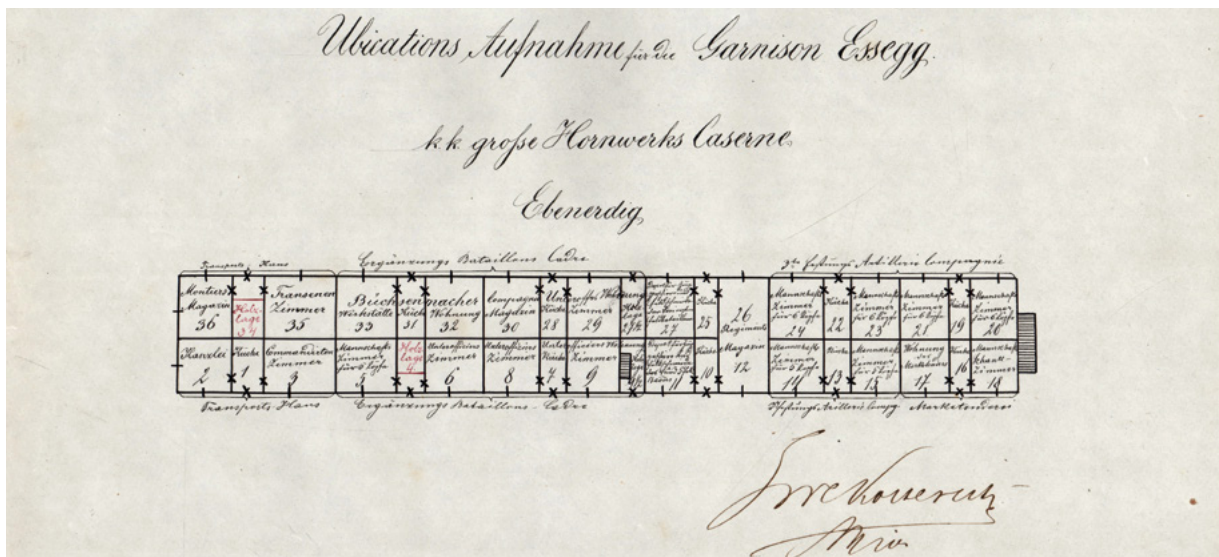 Ubications Aufnahme für die Garnison Essegg.
k.k. große Hornwerks Caserne
Ebenerdig
Transports Haus
Ergänzungs Bataillons Cadre
Festungs Artillerie Compagnie
Montiers
Magazin
36
Holz-
lage
34
Transenen
Zimmer
35
Büchsenmacher
Werkstätte
33
Küche
31
Wohnung
32
Compagnie
Magazin
30
Küche
28
Unteroffiz. Wohnung
Zimmer
29
Holz
lage
27
Küche
25
26
Regiments
Magazin
12
Mannschafts
Zimmer
für 6 Köpfe
24
Küche
22
Mannschafts
Zimmer
für 6 Köpfe
23
Mannschafts
Zimmer
für 6 Köpfe
21
Küche
19
Mannschafts
Zimmer
für 6 Köpfe
20
Kanzlei
2
Küche
1
Commandanten
Zimmer
3
Mannschafts
Zimmer
für 5 Köpfe
5
Holz
lage
4
Unteroffiziers
Zimmer
6
Unteroffiziers
Zimmer
8
Unter
Küche
7
Zimmer
9
11
Küche
10
Mannschafts
Zimmer
für 5 Köpfe
14
Küche
13
Mannschafts
Zimmer
15
Wohnung
17
Küche
16
Zimmer
18
Transports Haus
Ergänzungs Bataillons-Cadre
Festungs Artillerie Comp.
Marketenderei